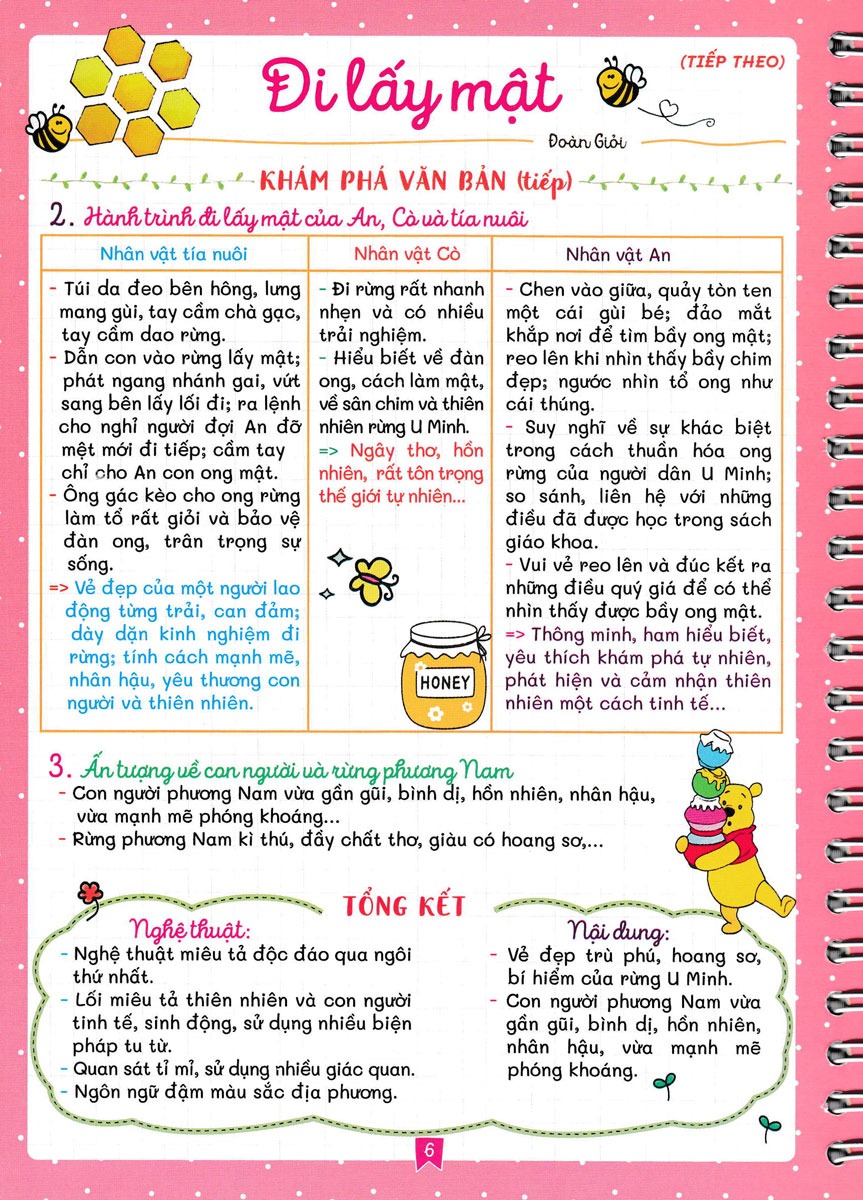 (TIẾP THEO)
Đi lấy mật
Đoàn Giỏi
KHÁM PHÁ VĂN BẢN (tiếp)
2. Hành trình đi lấy mật của An, Cò và tía nuôi
Nhân vật tía nuôi
- Túi da đeo bên hông, lưng
mang gùi, tay cầm chà gạc,
tay cầm dao rừng.
- Dẫn con vào rừng lấy mật;
phát ngang nhánh gai, vứt
sang bên lấy lối đi; ra lệnh
cho nghỉ người đợi An đỡ
mệt mới đi tiếp; cầm tay
chỉ cho An con ong mật.
- Ông gác kèo cho ong rừng
làm tổ rất giỏi và bảo vệ
đàn ong, trân trọng sự
sống.
=> Vẻ đẹp của một người lao
động từng trải, can đảm;
dày dặn kinh nghiệm đi
rừng; tính cách mạnh mẽ,
nhân hậu, yêu thương con
người và thiên nhiên.
Nhân vật Cò
- Đi rừng rất nhanh
nhẹn và có nhiều
trải nghiệm.
- Hiểu biết về đàn
ong, cách làm mật,
về sân chim và thiên
nhiên rừng U Minh.
=> Ngây thơ, hồn
nhiên, rất tôn trọng
thế giới tự nhiên...
HONEY
Nhân vật An
- Chen vào giữa, quảy tòn ten
một cái gùi bé; đảo mắt
khắp nơi để tìm bầy ong mật;
reo lên khi nhìn thấy bầy chim
đẹp; ngước nhìn tổ ong như
cái thúng.
- Suy nghĩ về sự khác biệt
trong cách thuần hóa ong
rừng của người dân U Minh;
so sánh, liên hệ với những
điều đã được học trong sách
giáo khoa.
- Vui vẻ reo lên và đúc kết ra
những điều quý giá để có thể
nhìn thấy được bầy ong mật.
=> Thông minh, ham hiểu biết,
yêu thích khám phá tự nhiên,
phát hiện và cảm nhận thiên
nhiên một cách tinh tế...
3. Ấn tượng về con người và rừng phương Nam
- Con người phương Nam vừa gần gũi, bình dị, hồn nhiên, nhân hậu,
vừa mạnh mẽ phóng khoáng...
- Rừng phương Nam kì thú, đầy chất thơ, giàu có hoang sơ,...
TỔNG KẾT
Nghệ thuật:
- Nghệ thuật miêu tả độc đáo qua ngôi
thứ nhất.
- Lối miêu tả thiên nhiên và con người
tinh tế, sinh động, sử dụng nhiều biện
pháp tu từ.
- Quan sát tỉ mỉ, sử dụng nhiều giác quan.
- Ngôn ngữ đậm màu sắc địa phương.
Nội dung:
- Vẻ đẹp trù phú, hoang sơ,
bí hiểm của rừng U Minh.
- Con người phương Nam vừa
gần gũi, bình dị, hồn nhiên,
nhân hậu, vừa mạnh mẽ
phóng khoáng.
6